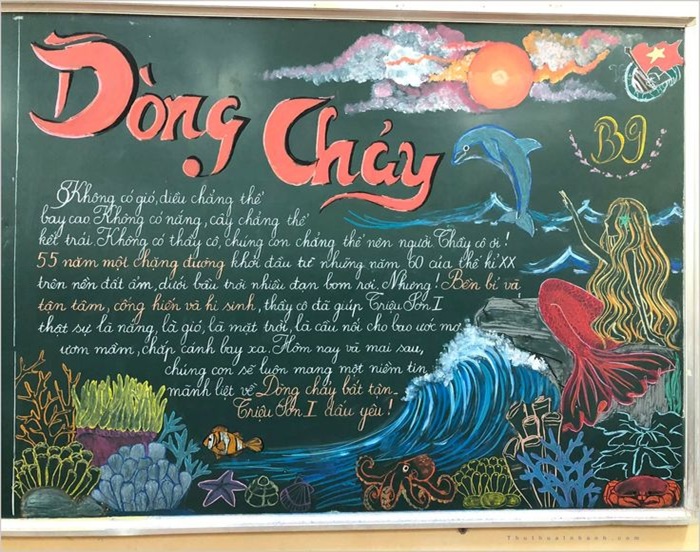 Dòng Chảy
B9
Không có gió, diều chẳng thể
bay cao Không có nắng, cây chẳng thể
kết trái Không có thầy cô, chúng con chẳng thể nên người Thầy cô ơi!
55 năm một chặng đường khởi đầu từ những năm 60 của thế kỉ XX
trên nền đất ấm, dưới bầu trời nhiều đạn bom rơi. Nhưng! Bền bỉ và
tận tâm, cống hiến và hi sinh, thầy cô đã giúp Triệu Sơn I
thật sự là nắng, là gió, là mặt trời, là cầu nối cho bao ước mơ
ươm mầm, chắp cánh bay xa. Hôm nay và mai sau,
chúng con sẽ luôn mang một niềm tin
mãnh liệt về Dòng chảy bất tận-
Triệu Sơn I dấu yêu!
Thuthuatnhanh.com